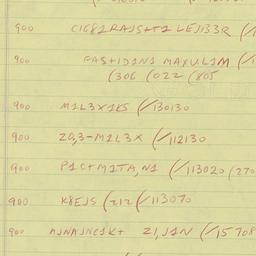 900 C1681RAJS+T1 LEJ133R (/1
900 FAS+1D1N1 MAXUL1M (/1
(306 (022 (805
900 M1L3X1K5 (/130130
900 20,3-M1L3X (/112130
900 P1C+M1TA,N1 (/113020 (270
900 K8EJS (212 (/113070
900 AJNAJNC1K+ 21,J1N (/15 708